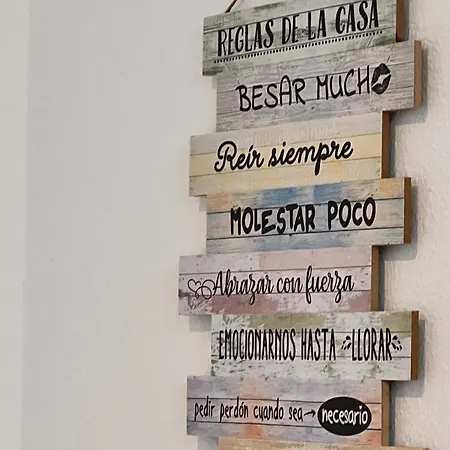 REGLAS DE LA CASA
BESAR MUCHO
Reír siempre
MOLESTAR POCO
Abrazar con fuerza
EMOCIONARNOS HASTA LLORAR
pedir perdón cuando sea→ necesario